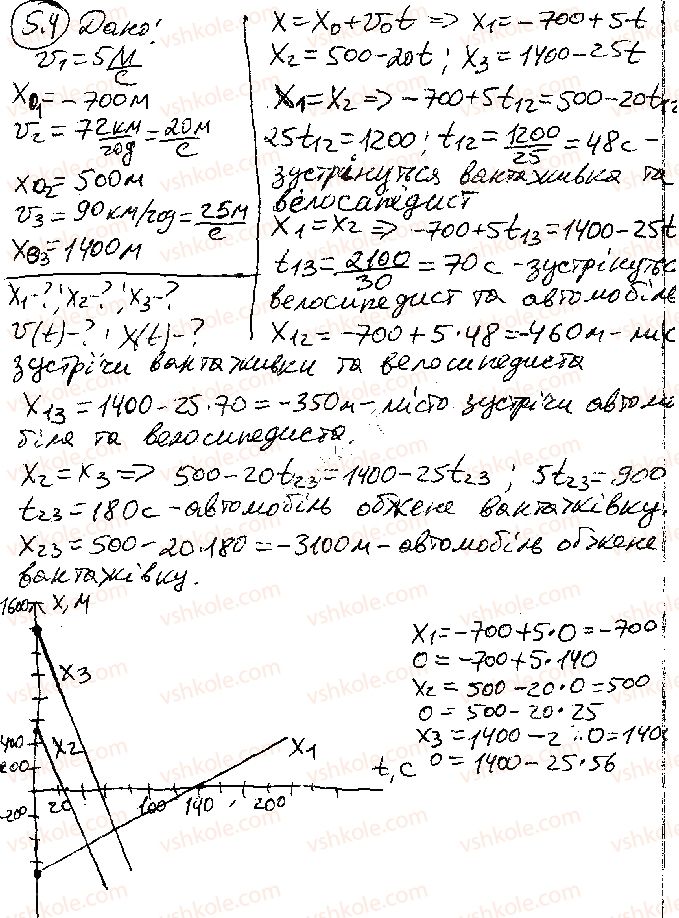 5.4 Дано:
v₁ = 5 м/с
x₀₁ = -700м
v₂ = 72 км/год = 20 м/с
x₀₂ = 500м
v₃ = 90 км/год = 25 м/с
x₀₃ = 1400м
x₁-?; x₂-?; x₃-?
v(t)-?; x(t)-?
x = x₀ + v₀t => x₁ = -700 + 5·t
x₂ = 500 - 20t; x₃ = 1400 - 25t
x₁ = x₂ => -700 + 5t₁₂ = 500 - 20t₁₂
25t₁₂ = 1200; t₁₂ = 1200/25 = 48с -
зустрінуться вантаживка та
велосапедист
x₁ = x₂ => -700 + 5t₁₃ = 1400 - 25t
t₁₃ = 2100/30 = 70с - зустрінуться
велосипедист та автомобіль
x₁₂ = -700 + 5·48 = -460м - міс
зустрічи вантаживки та велосипедиста
x₁₃ = 1400 - 25·70 = -350м - місто зустрічи автомо
біля та велосипедиста.
x₂ = x₃ => 500 - 20t₂₃ = 1400 - 25t₂₃; 5t₂₃ = 900
t₂₃ = 180с - автомобіль обжене вантажівку.
x₂₃ = 500 - 20·180 = -3100м - автомобіль обжене
вантажівку.
1600 x, м
x₃
400 x₂
200
x₁
t, с
20 100 140 200
-200
x₁ = -700 + 5·0 = -700
0 = -700 + 5·140
x₂ = 500 - 20·0 = 500
0 = 500 - 20·25
x₃ = 1400 - 2 ·0 = 140
0 = 1400 - 25·56
vshkole.com